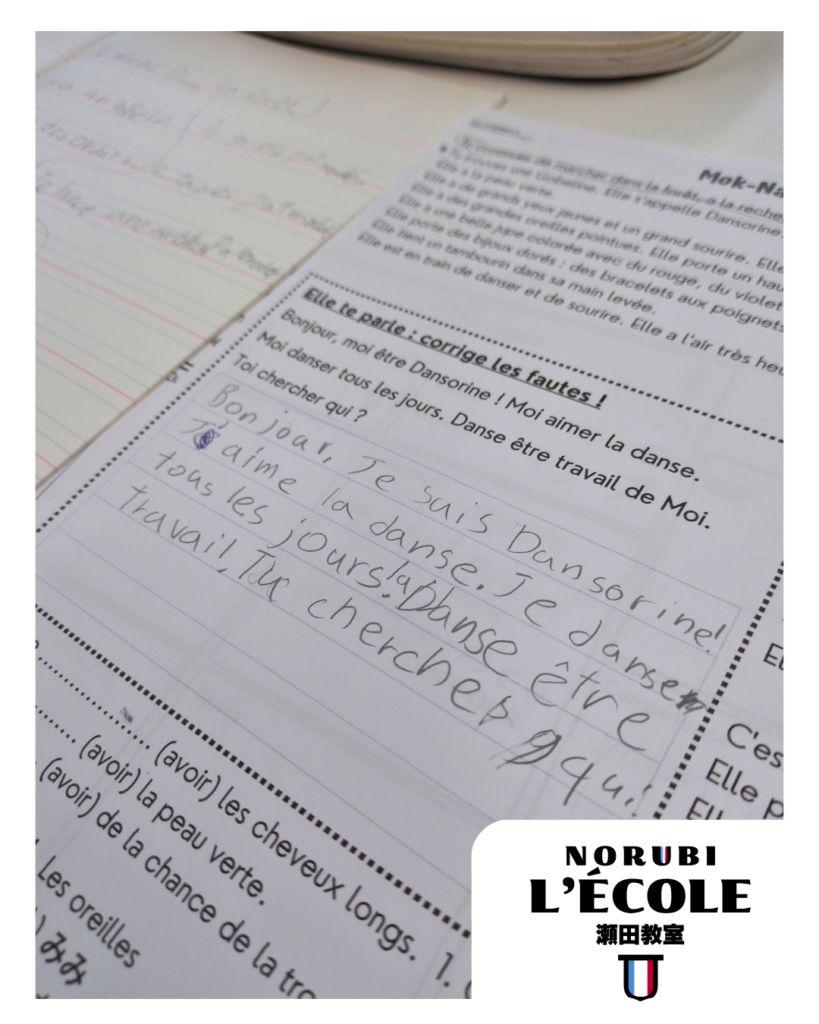 Mok-Na
Tu continues de marcher dans la forêt, à la reche
Tu trouves une Gobeline. Elle s'appelle Dansorine.
Elle a la peau verte.
Elle a de grands yeux jaunes et un grand sourire. Elle
Elle a des grandes oreilles pointues. Elle porte un hau
Elle a une belle jupe colorée avec du rouge, du violet
Elle porte des bijoux dorés : des bracelets aux poignets
Elle tient un tambourin dans sa main levée.
Elle est en train de danser et de sourire. Elle a l'air très heu
Elle te parle : corrige les fautes !
Bonjour, moi être Dansorine ! Moi aimer la danse.
Moi danser tous les jours. Danse être travail de Moi.
Toi chercher qui ?
Bonjour, Je suis Dansorine!
J'aime la danse. Je danse
tous les jours. la Danse être
travail, Tu cherches qui
(avoir) les cheveux longs.
(avoir) la peau verte.
(avoir) de la chance de la tro
Les oreilles
みみ
1.
El
C'es
Elle p
Ell
NORUBI
L'ÉCOLE
瀬田教室